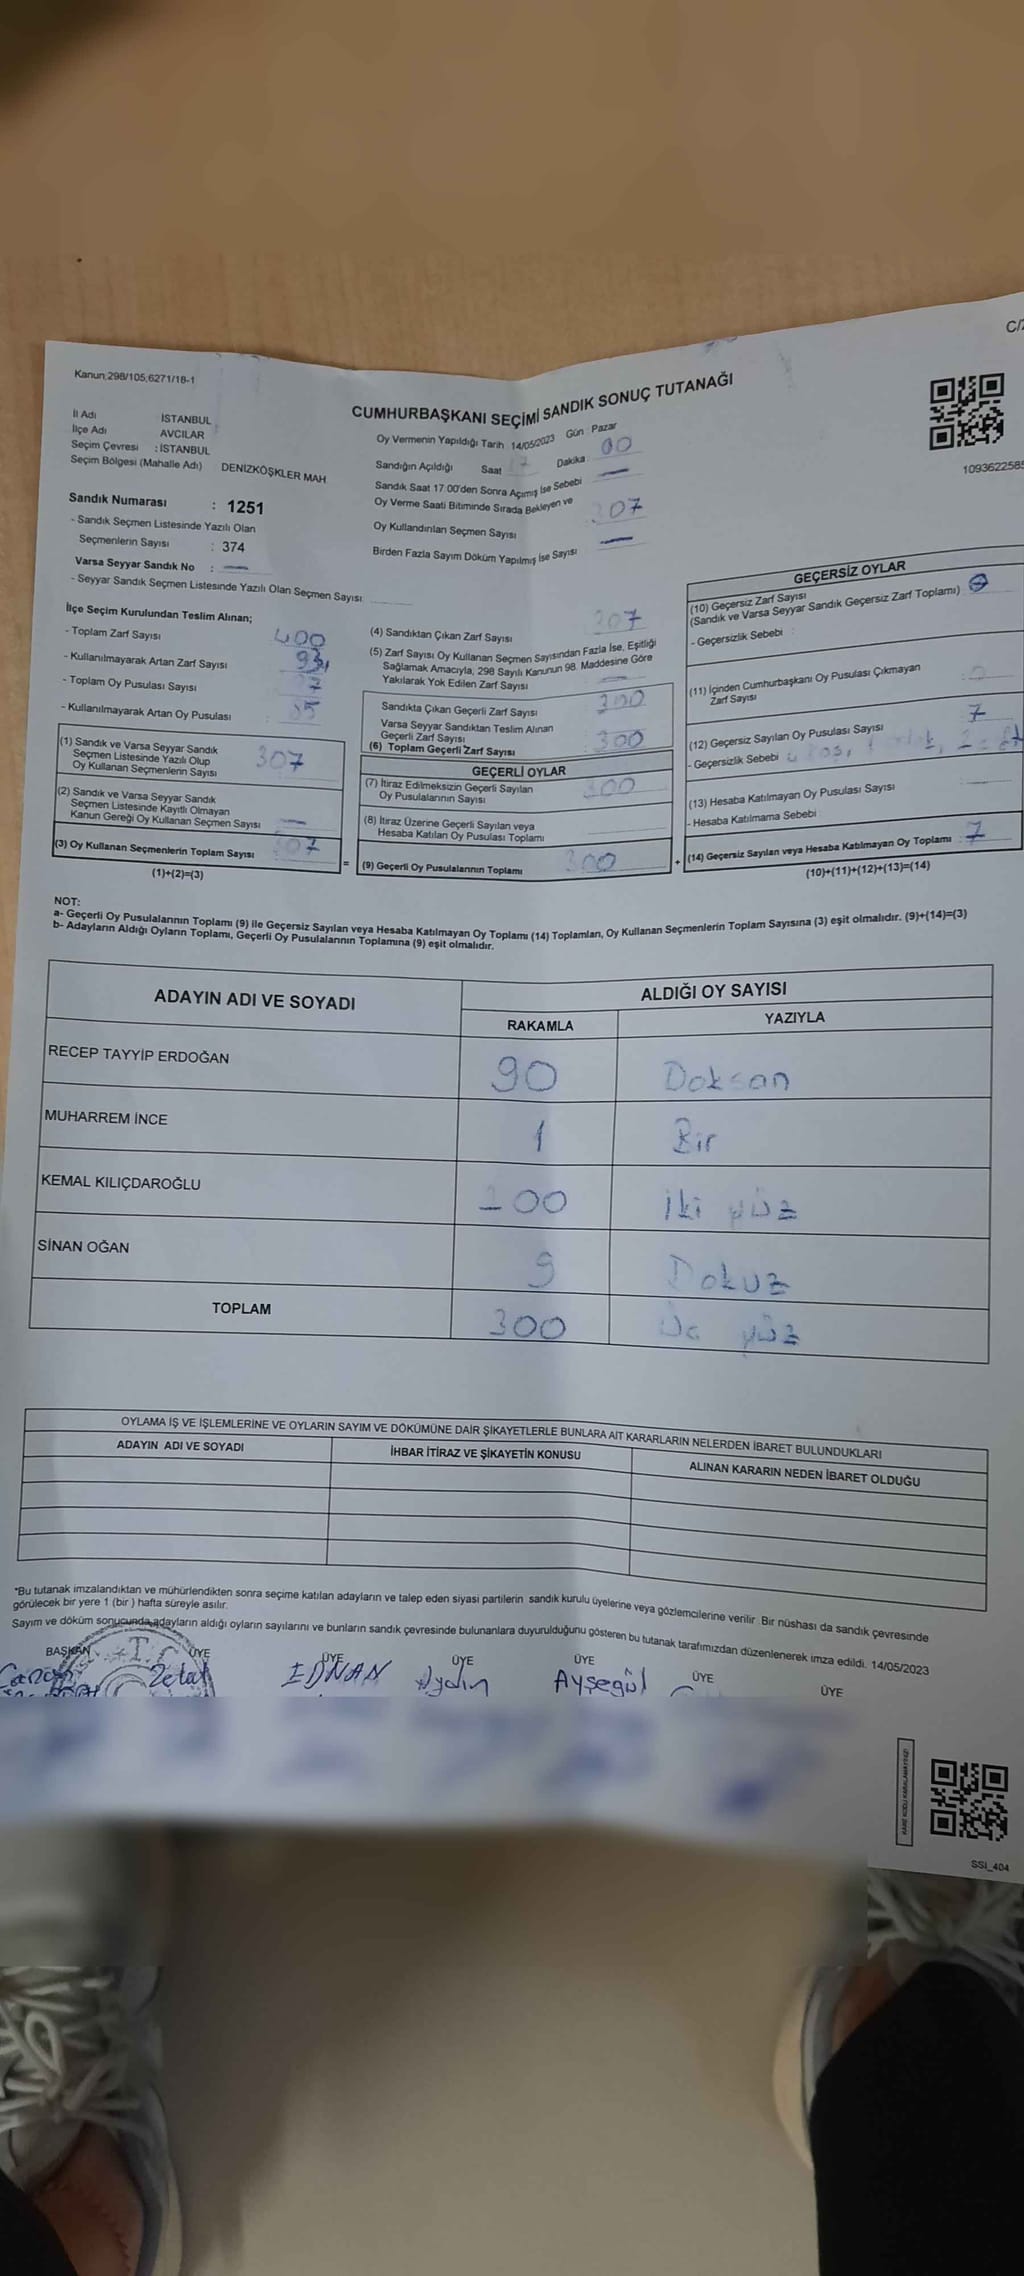 C/2
Kanun,298/105;6271/18-1
CUMHURBAŞKANI SEÇİMİ SANDIK SONUÇ TUTANAĞI
1093622585
İl Adı İSTANBUL
İlçe Adı AVCILAR
Seçim Çevresi : İSTANBUL
Seçim Bölgesi (Mahalle Adı) DENİZKÖŞKLER MAH
Sandık Numarası : 1251
- Sandık Seçmen Listesinde Yazılı Olan
Seçmenlerin Sayısı : 374
Varsa Seyyar Sandık No : —
- Seyyar Sandık Seçmen Listesinde Yazılı Olan Seçmen Sayısı
Oy Vermenin Yapıldığı Tarih 14/05/2023 Gün : Pazar
Sandığın Açıldığı Saat 17 Dakika 00
Sandık Saat 17:00'den Sonra Açımış İse Sebebi —
Oy Verme Saati Bitiminde Sırada Bekleyen ve
Oy Kullandırılan Seçmen Sayısı 307
Birden Fazla Sayım Döküm Yapılmış İse Sayısı —
İlçe Seçim Kurulundan Teslim Alınan;
- Toplam Zarf Sayısı 400
- Kullanılmayarak Artan Zarf Sayısı 93
- Toplam Oy Pusulası Sayısı
- Kullanılmayarak Artan Oy Pusulası :
(1) Sandık ve Varsa Seyyar Sandık
Seçmen Listesinde Yazılı Olup
Oy Kullanan Seçmenlerin Sayısı 307
(2) Sandık ve Varsa Seyyar Sandık
Seçmen Listesinde Kayıtlı Olmayan
Kanun Gereği Oy Kullanan Seçmen Sayısı —
(3) Oy Kullanan Seçmenlerin Toplam Sayısı 307
(1)+(2)=(3)
=
(4) Sandıktan Çıkan Zarf Sayısı 307
(5) Zarf Sayısı Oy Kullanan Seçmen Sayısından Fazla İse, Eşitliği
Sağlamak Amacıyla, 298 Sayılı Kanunun 98. Maddesine Göre
Yakılarak Yok Edilen Zarf Sayısı —
Sandıkta Çıkan Geçerli Zarf Sayısı 300
Varsa Seyyar Sandıktan Teslim Alınan
Geçerli Zarf Sayısı
(6) Toplam Geçerli Zarf Sayısı : 300
GEÇERLİ OYLAR
(7) İtiraz Edilmeksizin Geçerli Sayılan
Oy Pusulalarının Sayısı 300
(8) İtiraz Üzerine Geçerli Sayılan veya
Hesaba Katılan Oy Pusulası Toplamı
(9) Geçerli Oy Pusulalarının Toplamı 300
+
GEÇERSİZ OYLAR
(10) Geçersiz Zarf Sayısı
(Sandık ve Varsa Seyyar Sandık Geçersiz Zarf Toplamı)
- Geçersizlik Sebebi :
(11) İçinden Cumhurbaşkanı Oy Pusulası Çıkmayan
Zarf Sayısı
(12) Geçersiz Sayılan Oy Pusulası Sayısı 7
- Geçersizlik Sebebi
(13) Hesaba Katılmayan Oy Pusulası Sayısı
- Hesaba Katılmama Sebebi
(14) Geçersiz Sayılan veya Hesaba Katılmayan Oy Toplamı : 7
(10)+(11)+(12)+(13)=(14)
NOT:
a- Geçerli Oy Pusulalarının Toplamı (9) ile Geçersiz Sayılan veya Hesaba Katılmayan Oy Toplamı (14) Toplamları, Oy Kullanan Seçmenlerin Toplam Sayısına (3) eşit olmalıdır. (9)+(14)=(3)
b- Adayların Aldığı Oyların Toplamı, Geçerli Oy Pusulalarının Toplamına (9) eşit olmalıdır.
ADAYIN ADI VE SOYADI ALDIĞI OY SAYISI
RAKAMLA YAZIYLA
RECEP TAYYİP ERDOĞAN 90 Doksan
MUHARREM İNCE 1 Bir
KEMAL KILIÇDAROĞLU 200 İki yüz
SİNAN OĞAN 9 Dokuz
TOPLAM 300 Üç yüz
OYLAMA İŞ VE İŞLEMLERİNE VE OYLARIN SAYIM VE DÖKÜMÜNE DAİR ŞİKAYETLERLE BUNLARA AİT KARARLARIN NELERDEN İBARET BULUNDUKLARI
ADAYIN ADI VE SOYADI İHBAR İTİRAZ VE ŞİKAYETİN KONUSU ALINAN KARARIN NEDEN İBARET OLDUĞU
*Bu tutanak imzalandıktan ve mühürlendikten sonra seçime katılan adayların ve talep eden siyasi partilerin sandık kurulu üyelerine veya gözlemcilerine verilir. Bir nüshası da sandık çevresinde
görülecek bir yere 1 (bir) hafta süreyle asılır.
Sayım ve döküm sonucunda adayların aldığı oyların sayılarını ve bunların sandık çevresinde bulunanlara duyurulduğunu gösteren bu tutanak tarafımızdan düzenlenerek imza edildi. 14/05/2023
BAŞKAN ÜYE ÜYE ÜYE ÜYE ÜYE ÜYE
T.C.
Aydın Ayşegül
SSI_404